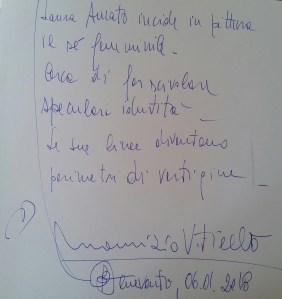 Laura Amato incide in pittura
il sé femminile.
Cerca di far scivolare
speculari identità
Le sue linee diventano
perimetri di vertigine
Maurizio Vitiello
Benevento, 06.01.2018